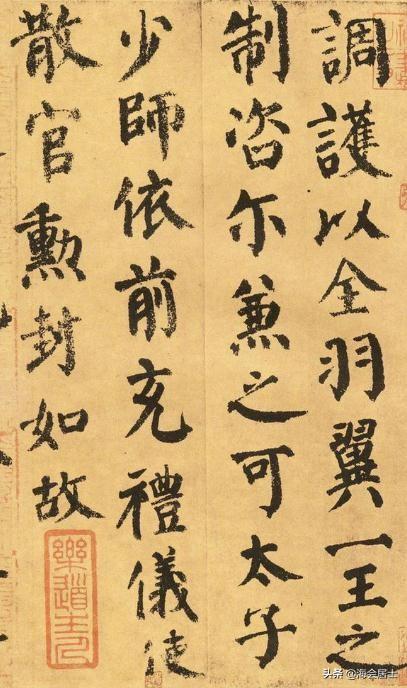 調護以全羽翼一王之
制咨尓兼之可太子
少師依前充禮儀使
散官勳封如故
樂道主人
头条 @海会居士